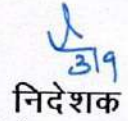 3/9
निदेशक